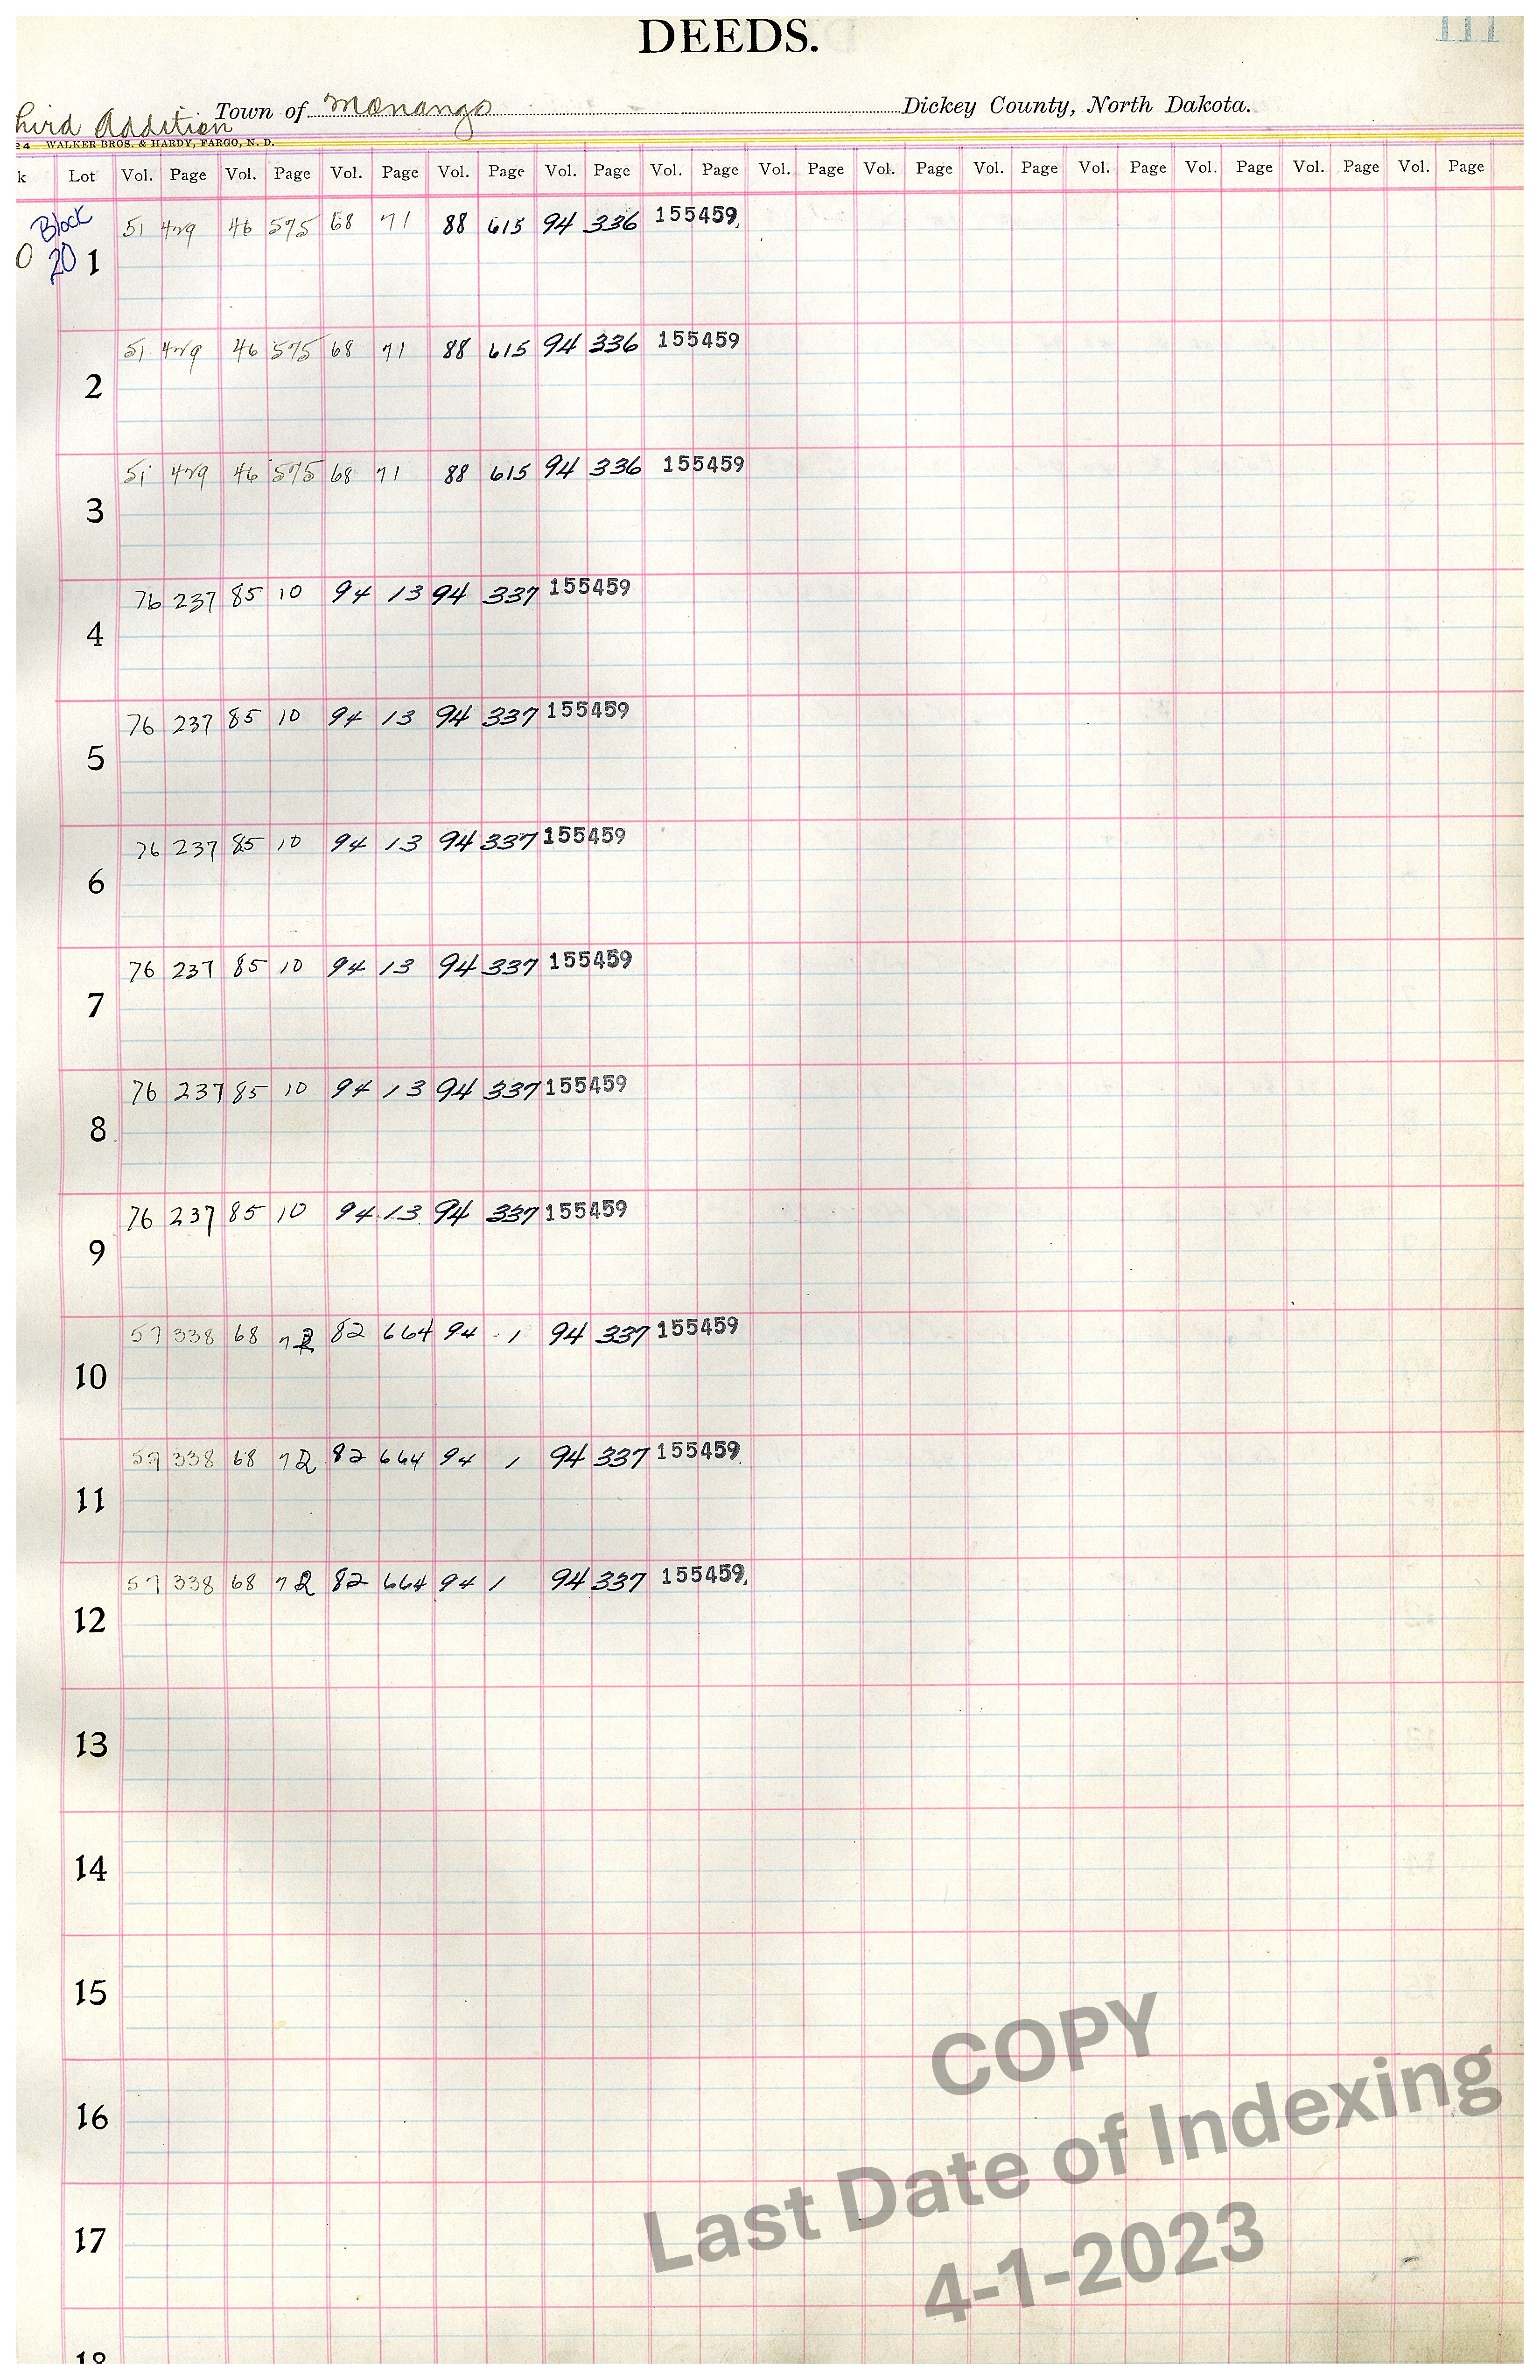 DEEDS.
111
hird Addition Town of Monango Dickey County, North Dakota.
24 WALKER BROS. & HARDY, FARGO, N. D.
k Lot Vol. Page Vol. Page Vol. Page Vol. Page Vol. Page Vol. Page Vol. Page Vol. Page Vol. Page Vol. Page Vol. Page Vol. Page Vol. Page
Block 51 429 46 575 68 71 88 615 94 336 155459
0 20 1
51 429 46 575 68 71 88 615 94 336 155459
2
51 429 46 575 68 71 88 615 94 336 155459
3
76 237 85 10 94 13 94 337 155459
4
76 237 85 10 94 13 94 337 155459
5
76 237 85 10 94 13 94 337 155459
6
76 237 85 10 94 13 94 337 155459
7
76 237 85 10 94 13 94 337 155459
8
76 237 85 10 94 13 94 337 155459
9
57 338 68 72 82 664 94 1 94 337 155459
10
57 338 68 72 82 664 94 1 94 337 155459
11
57 338 68 72 82 664 94 1 94 337 155459
12
13
14
15
16
17
18
COPY
Last Date of Indexing
4-1-2023